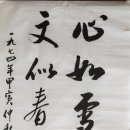 心如雪
文似春
一九七四年甲寅仲秋